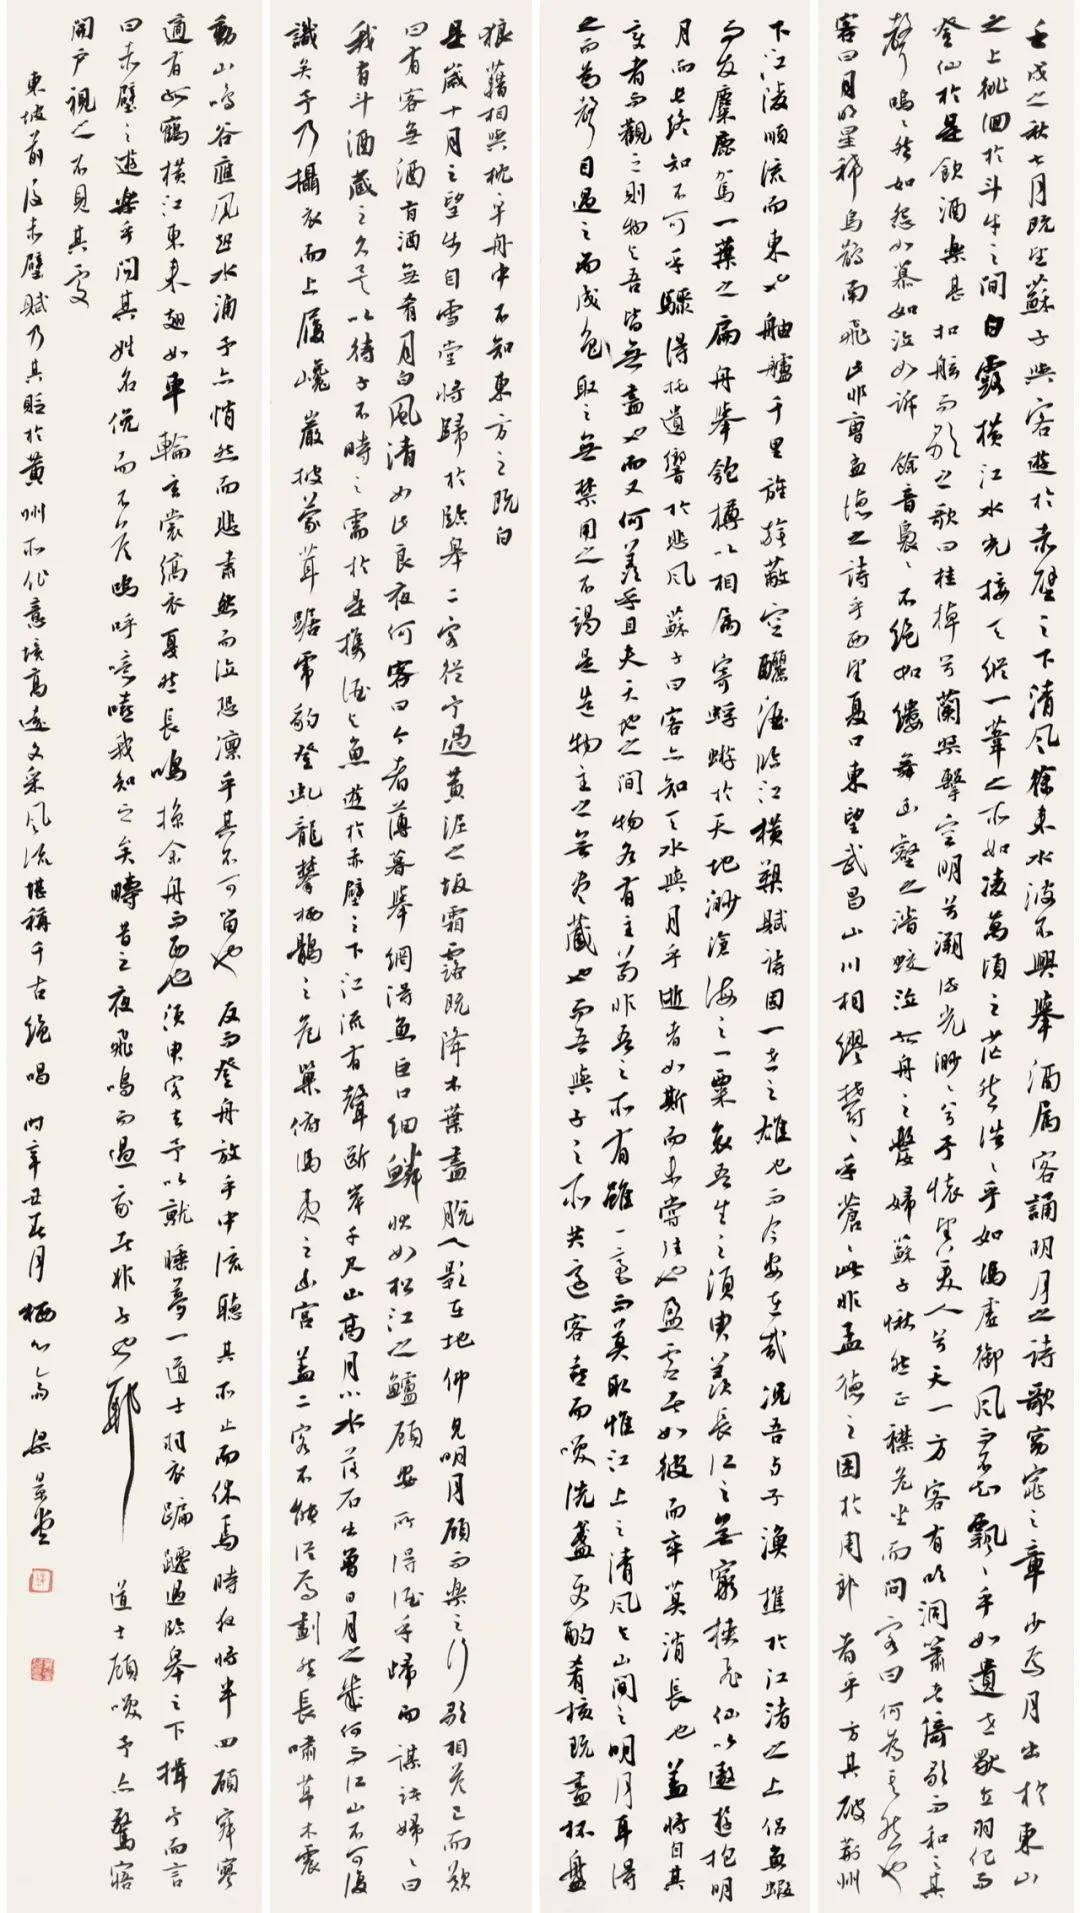 壬戌之秋七月既望蘇子與客遊於赤壁之下清風徐來水波不興舉酒属客誦明月之詩歌窈窕之章少焉月出於東山
之上徘徊於斗牛之間白露橫江水光接天縱一葦之所如凌萬頃之茫然浩浩乎如馮虛御風而不知飄飄乎如遺世獨立羽化而
登仙於是飲酒樂甚扣舷而歌之歌曰桂棹兮蘭槳擊空明兮溯流光渺渺兮予懷望美人兮天一方客有吹洞簫者倚歌而和之其
聲嗚嗚然如怨如慕如泣如訴餘音裊裊不絕如縷舞幽壑之潛蛟泣孤舟之嫠婦蘇子愀然正襟危坐而問客曰何為其然也
客曰月明星稀烏鵲南飛此非曹孟德之詩乎西望夏口東望武昌山川相繆鬱鬱乎蒼蒼此非孟德之困於周郎者乎方其破荊州
下江陵順流而東也舳艫千里旌旗蔽空釃酒臨江橫槊賦詩固一世之雄也而今安在哉況吾與子漁樵於江渚之上侶魚蝦
而友麋鹿駕一葉之扁舟舉匏樽以相屬寄蜉蝣於天地渺滄海之一粟哀吾生之須臾羨長江之無窮挾飛仙以遨遊抱明
月而長終知不可乎驟得托遺響於悲風蘇子曰客亦知夫水與月乎逝者如斯而未嘗往也盈虛者如彼而卒莫消長也蓋將自其
變者而觀之則物與吾皆無盡也而又何羨乎且夫天地之間物各有主苟非吾之所有雖一毫而莫取惟江上之清風與山間之明月耳得
之而為聲目遇之而成色取之無禁用之不竭是造物主之無盡藏也而吾與子之所共適客喜而笑洗盞更酌肴核既盡杯盤
狼藉相與枕乎舟中不知東方之既白
是歲十月之望步自雪堂將歸於臨皋二客從予過黃泥之坂霜露既降木葉盡脫人影在地仰見明月顧而樂之行歌相答已而歎
曰有客無酒有酒無肴月白風清如此良夜何客曰今者薄暮舉網得魚巨口細鱗狀如松江之鱸顧安所得酒乎歸而謀諸婦婦曰
我有斗酒藏之久矣以待子不時之需於是攜酒與魚遊於赤壁之下江流有聲斷岸千尺山高月小水落石出曾日月之幾何而江山不可復
識矣予乃攝衣而上履巉巖披蒙茸踞虎豹登虬龍攀栖鶻之危巢俯馮夷之幽宮蓋二客不能從焉劃然長嘯草木震
動山鳴谷應風起水涌予亦悄然而悲肅然而泣恐凛乎其不可留也反而登舟放乎中流聽其所止而休焉時夜將半四顧寂寥
適有孤鶴橫江東來翅如車輪玄裳縞衣戛然長鳴掠余舟而西也須臾客去予以就睡夢一道士羽衣蹁躚過臨皋之下揖予而言
曰赤壁之遊樂乎問其姓名俛而不答嗚呼噫嘻我知之矣疇昔之夜飛鳴而過我者非子也耶道士顧笑予亦驚寤
開戶視之不見其處
東坡前後赤壁賦乃其貶於黃州所作意境高遠文采風流堪稱千古絕唱時辛丑春月栖心齋